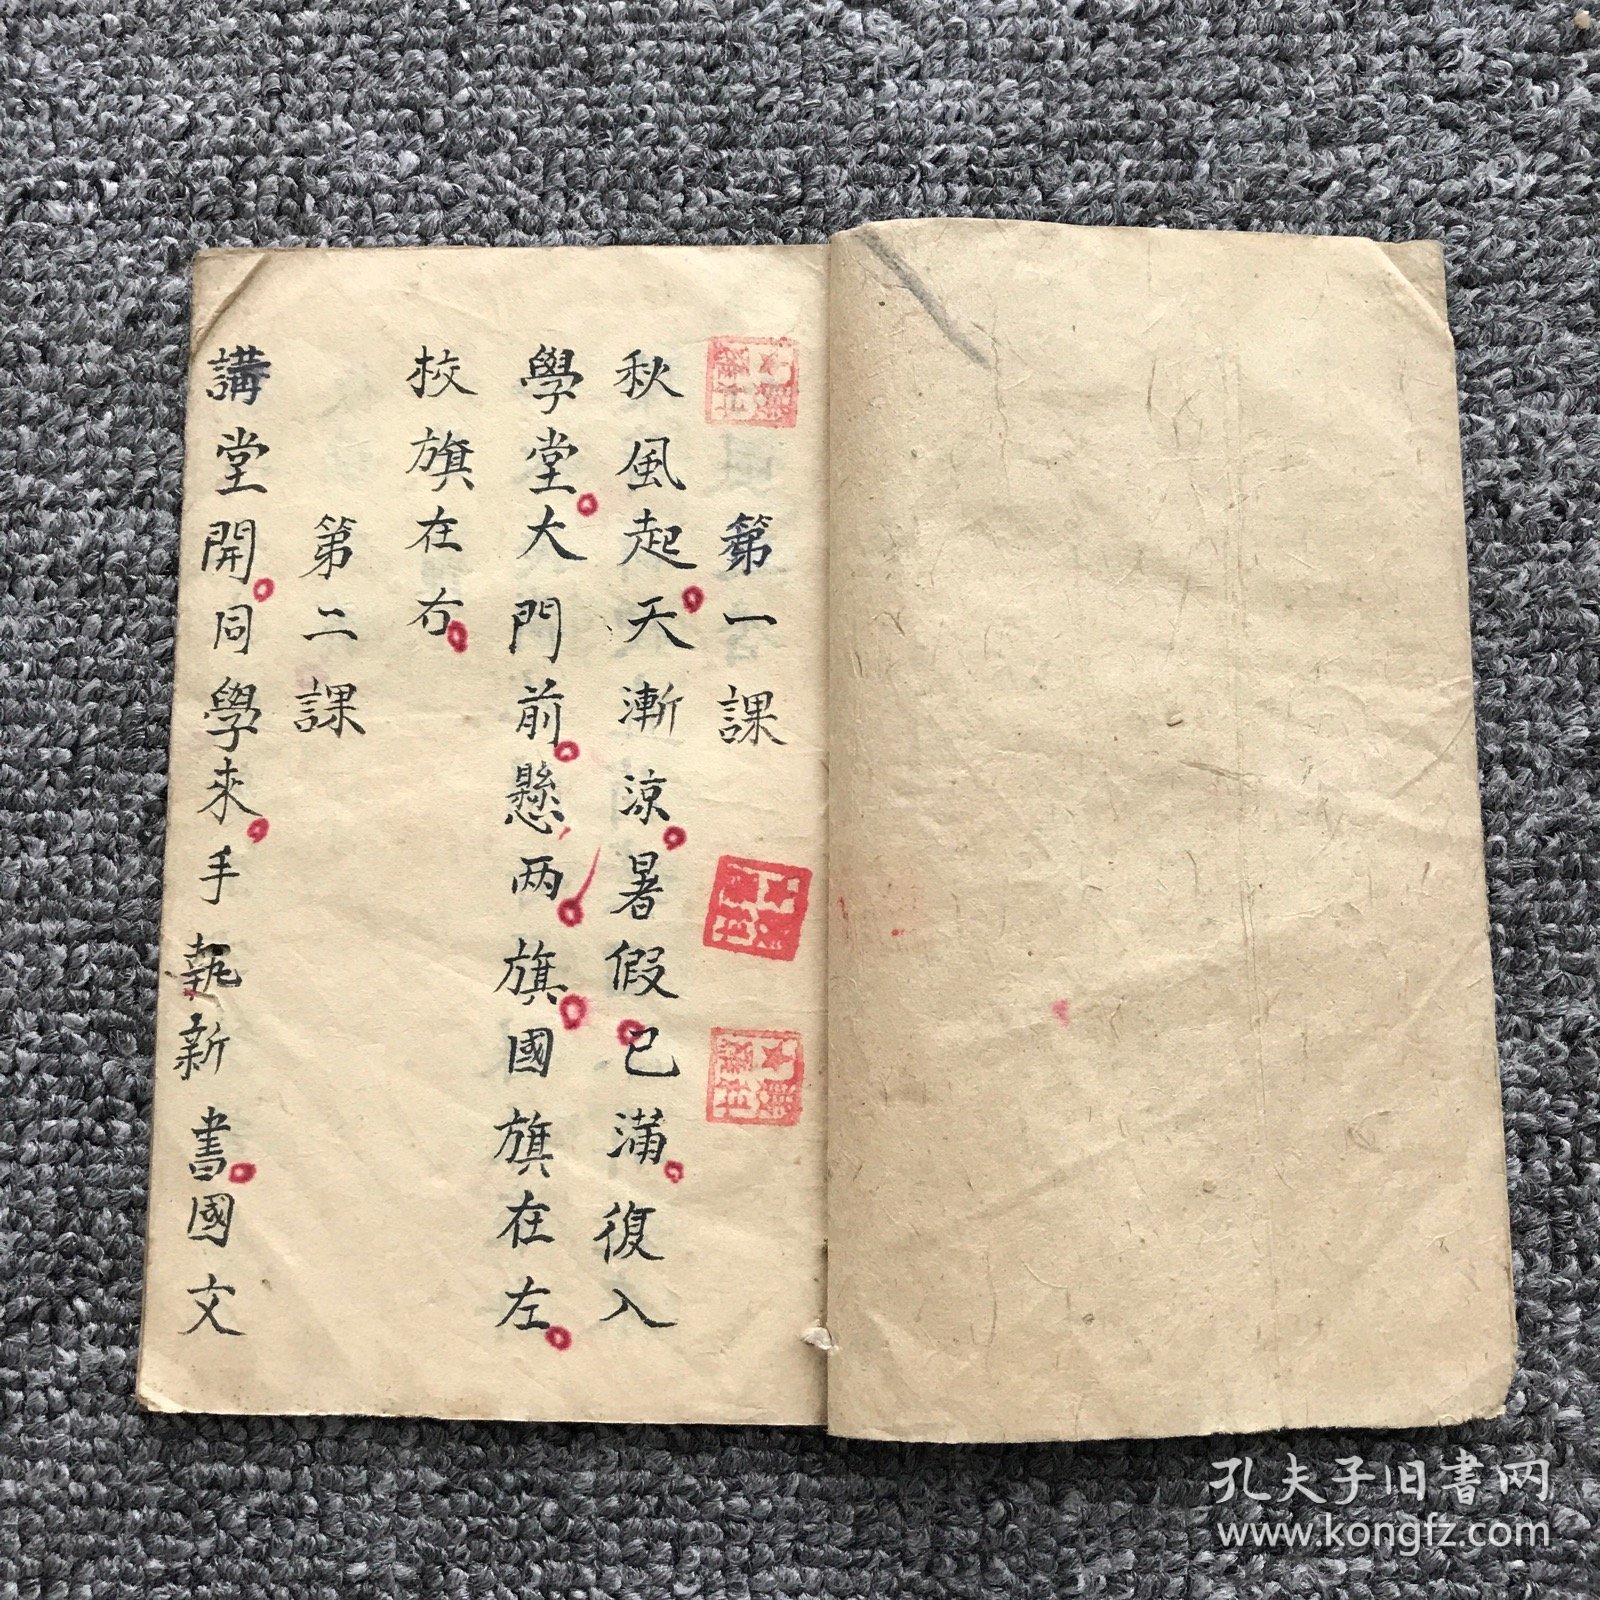 第一課
秋風起天漸涼暑假已滿復入
學堂大門前懸两旗國旗在左
校旗在右
第二課
講堂開同學來手執新書國文
孔夫子旧书网
www.kongfz.com